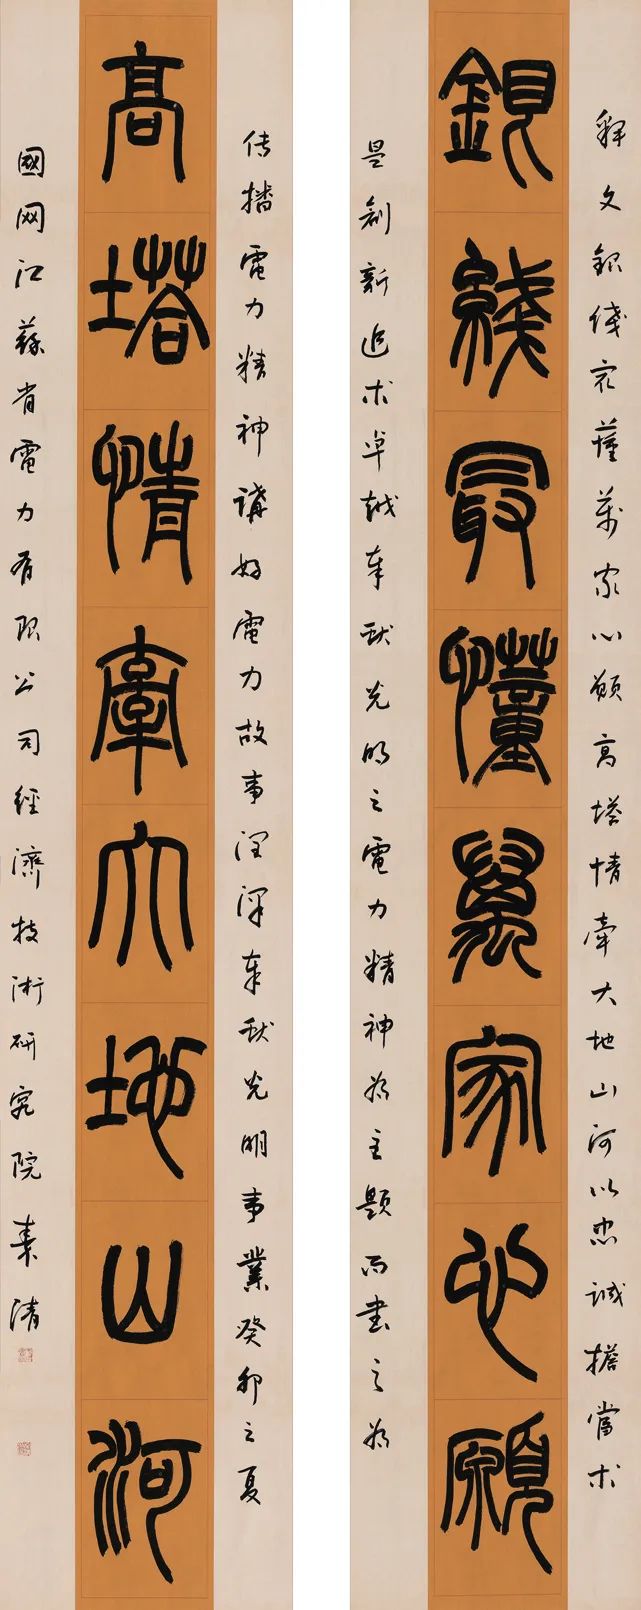 釋文銀綫最懂萬家心願高塔情牽大地山河以忠誠擔當求
銀綫最懂萬家心願
是創新追求卓越奉獻光明之電力精神為主題而書之為
传播電力精神講好電力故事潤澤奉獻光明事業癸卯之夏
高塔情牽大地山河
國网江蘇省電力有限公司經濟技術研究院清